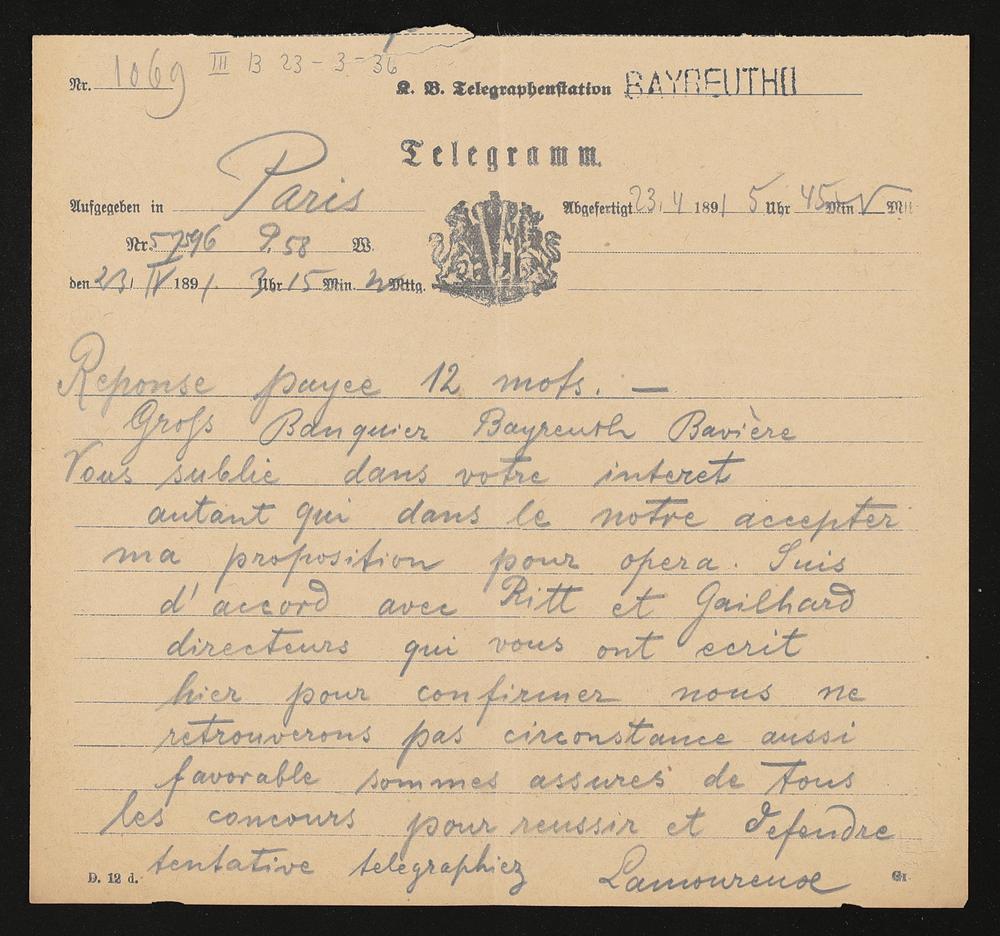 Nr. 1069 III B 23-3-36
K. B. Telegraphenstation BAYREUTH
Telegramm.
Aufgegeben in Paris
Abgefertigt 23. 4 1891 5 Uhr 45 Min N
Nr. 9.58 W.
den 23/ IV 1891. 3 Uhr 15 Min. Mttg.
Reponse payee 12 mots. —
Groß Banquier Bayreuth Bavière
Vous sublie dans votre interet
autant qui dans le notre accepter
ma proposition pour opera. Suis
d'accord avec Ritt et Gailhard
directeurs qui vous ont ecrit
hier pour confirmer nous ne
retrouverons pas circonstance aussi
favorable sommes assures de tous
les concours pour reussir et defendre
tentative telegraphiez Lamoureux
D. 12 d.